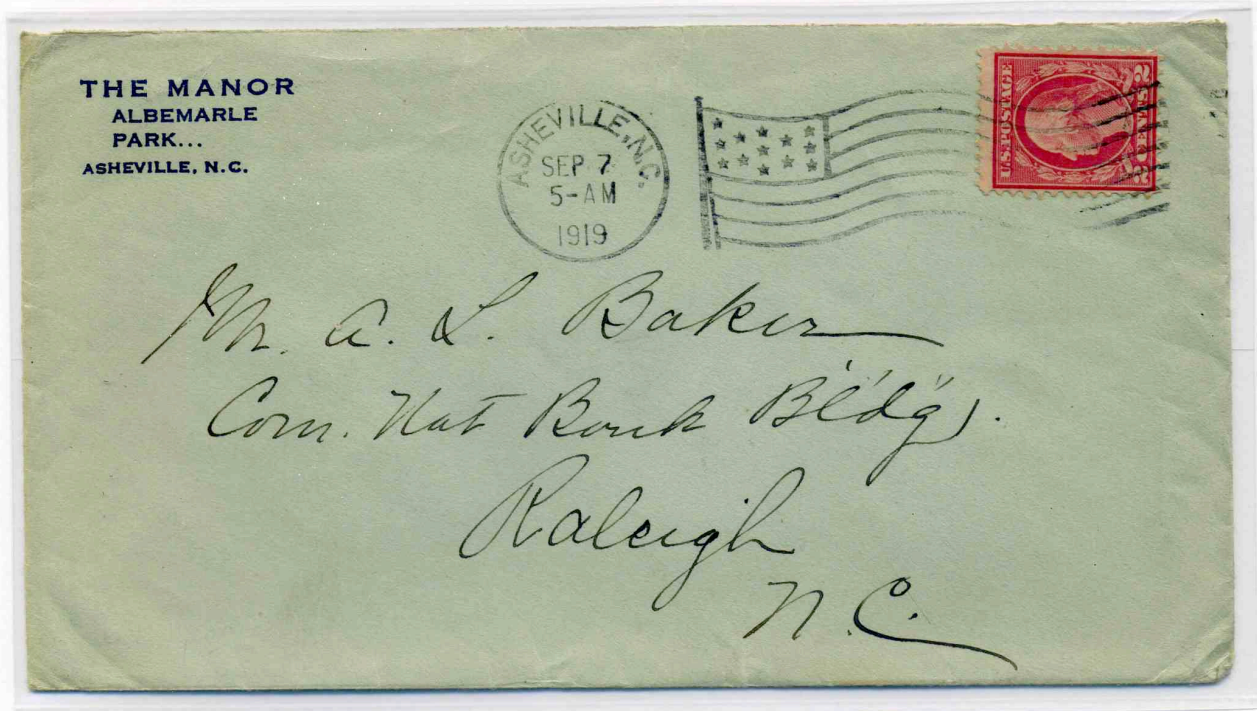 THE MANOR
ALBEMARLE
PARK...
ASHEVILLE, N.C.
ASHEVILLE, N.C.
SEP. 7
5-AM
1919
U.S. POSTAGE
2 CENTS 2
Mr. A. L. Baker
Com. Nat Bank Bldg.
Raleigh
N.C.